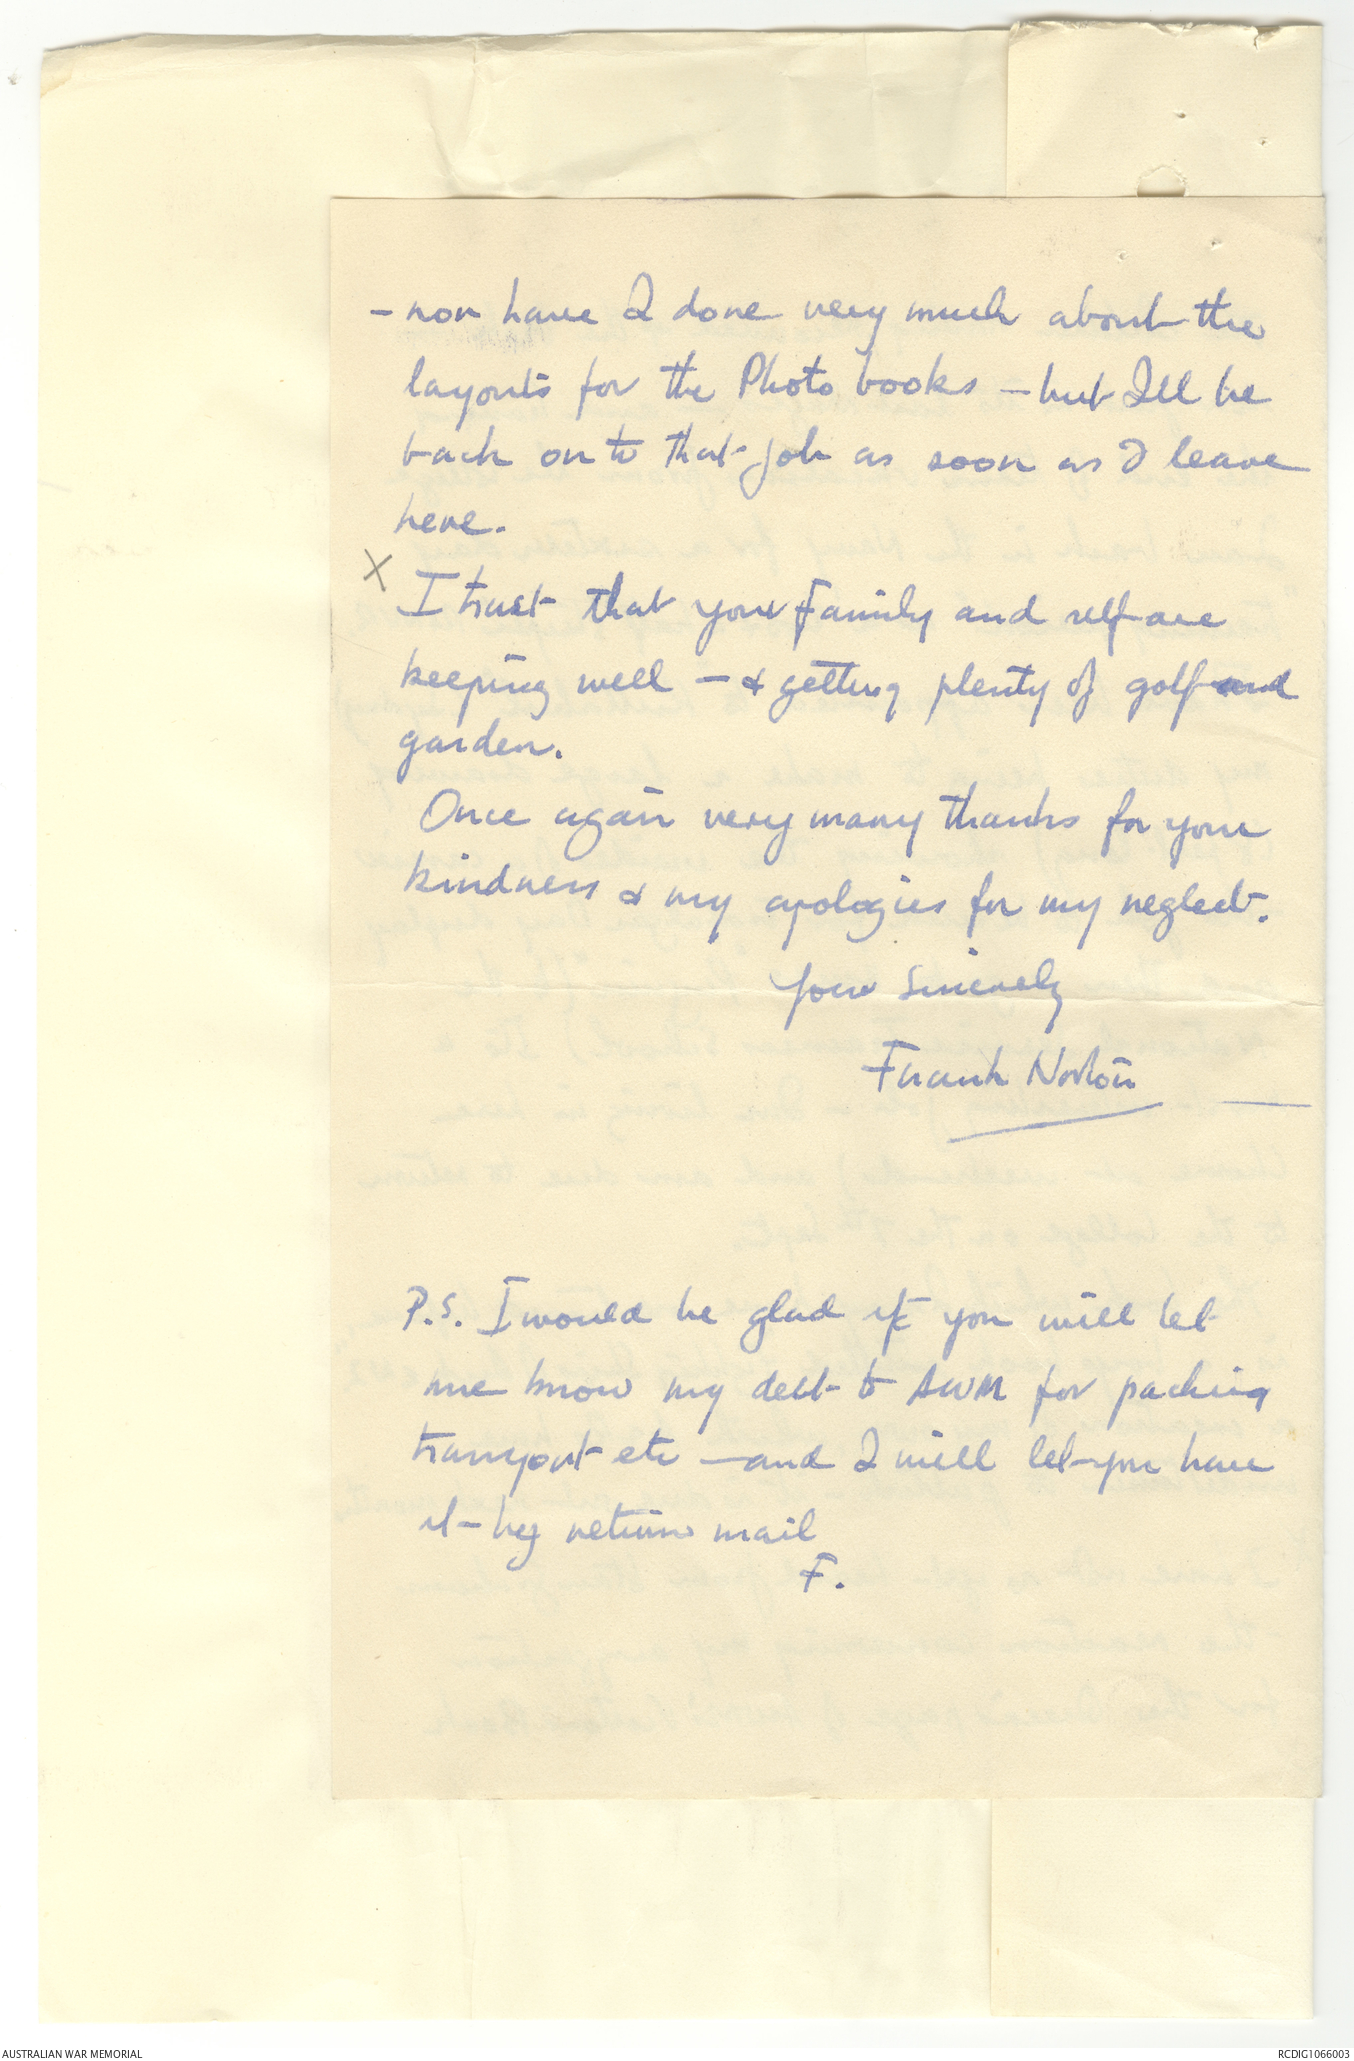 - nor have I done very much about the
layouts for the Photo books - but I'll be
back on to that job as soon as I leave
here.
X
I trust that your family and self are
keeping well - & getting plenty of golf and
garden.
Once again very many thanks for your
kindness & my apologies for my neglect.
Your Sincerely
Frank Norton
P.S. I would be glad if you will let
me know my debt to AWM for packing
transport etc - and I will let you have
it - by return mail
F.
AUSTRALIAN WAR MEMORIAL
RCDIG1066003